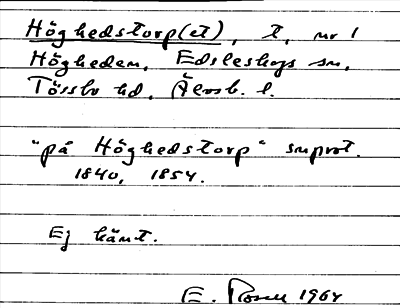 Höghedstorp(et), t, nr 1
Högheden, Edsleskogs sn,
Tössbo hd, Älvsb. l.
"på Höghedstorp" snprot.
1840, 1854.
Ej känt.
E. Rosell 1964